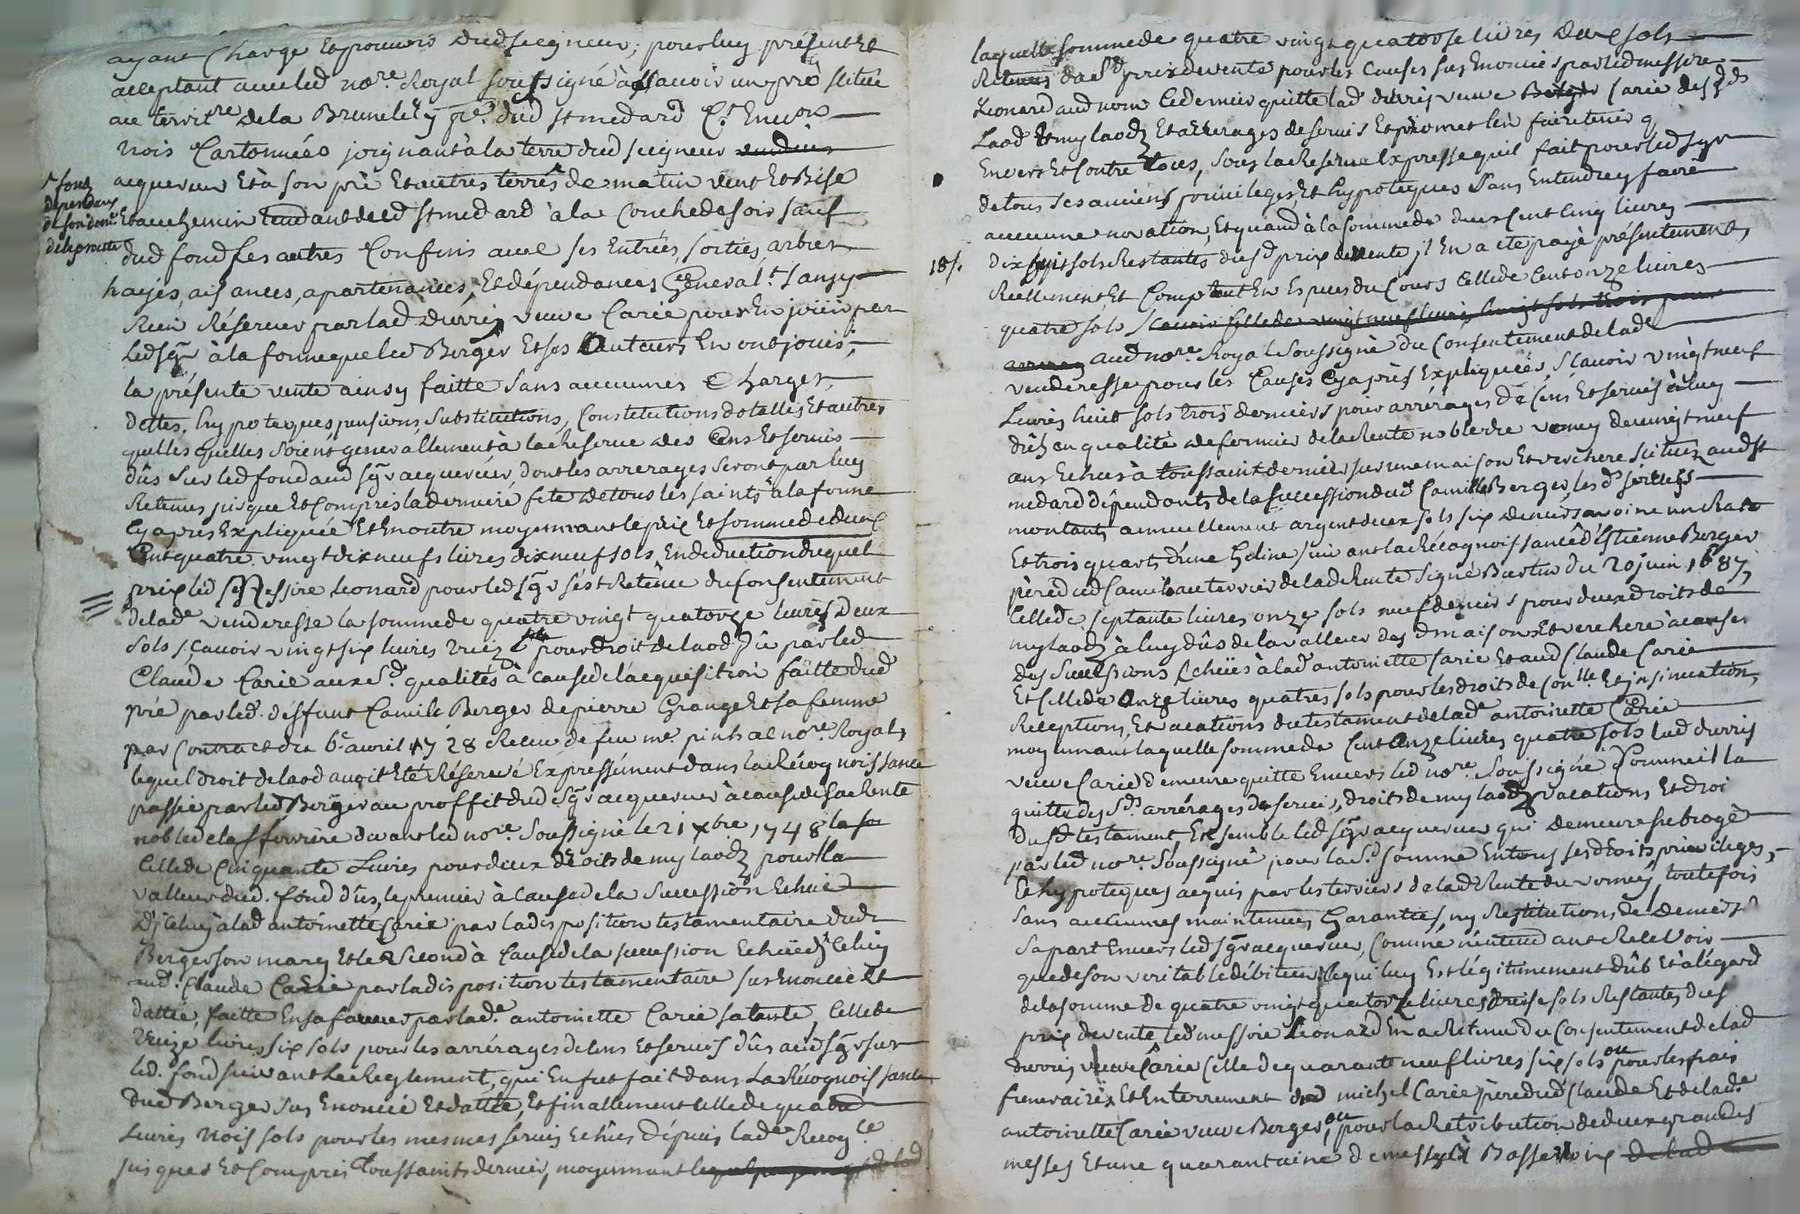 ayant Charge et pouvoir dud seigneur, pour luy présent et
acceptant avec led no.re Royal soussigné à sçavoir un pré scitué
au territ.re de la Brunelly p.e dud st medard C.t Environ
trois Cartonnées joignant à la terre dud seigneur
acquereur et à son pré et autres terres de matin vent et Bise
s. fond
dependant
de son dom.e
de la proutte
Et au chemin tendant de st medard à la Couche de soir sauf
dud fond ses autres Confins avec ses Entrées, sorties, arbres
hayes, aisances, apartenances, Et dépendances General.t sans y
Rien Réserver par lad Durris veuve Carie pour En joüir par
led sgr à la forme que led Berger et ses Auteurs En ont joüis,
la présente vente ainsy faitte sans aucunnes Charges,
dettes, hypoteques pensions, substitutions, Constitutions dotalles et autres
quelles quelles soient generallement à la Reserve des Cens et servis
dûs sur led fond aud sgr acquereur, dont les arrerages seront par luy
Retenus jusque et Compris la derniere fête de tous les saints à la forme
Cy apres Expliquée Et En outre moyennant le prix et somme de deux
Cent quatre vingt dix neuf livres dix neuf sols, En deduction duquel
prix led s.r Messire Leonard pour led sgr s'est Retenu du consentement
de lad.e venderesse la somme de quatre vingt quatorze livres deux
sols sçavoir vingt six livres pour droit de laod dû par led
Claude Carie aux s.d qualités à cause de l'acquisition faitte dud
pré par led. deffunt Camille Berger de pierre Grange et sa femme
par Contract du 6.e avril 1728 Receu de feu m.e no.re Royal,
lequel droit de laod avoit été Réservé Expressément dans la Récognoissance
passée par led Berger au proffit dud sgr acquereur à cause de sa Rente
noble de la fferriere devant led no.re soussigné le 21 xbre 1748
Celle de Cinquante Livres pour deux droits de my laod pour la
valleur dud. fond dûs, le premier à Cause de la succession Echüe
d'Iceluy à lad antoinette Carie par la disposition testamentaire dud
Berger son mary et le second à Cause de la succession Echüe d'Iceluy
aud. Claude Carie par la disposition testamentaire sus Enoncée et
dattée, faitte En sa faveur par lad.e antoinette Carie sa tante Celle de
treize livres six sols pour les arrérages de cens et servis dûs aud sgr sur
led. fond suivant le Reglement, qui En fut fait dans la Récognoissance
dud Berger sus Enoncée Et dattée, Et finallement celle de quatre
Livres trois sols pour les mesmes servis Echûs depuis lad.e Recog.ce
jusques et Compris Toussaints dernier, moyennant
laquelle somme de quatre vingt quatorze livres deux sols
Retenus du s.d prix de vente pour les Causes sus Enoncées par led messire
Leonard aud nom Ce dernier quitte lad Durris veuve Carie des s.ds
Laod Et my laods Et arrerages de servis Et promet l'en faire tenir q
Envers Et Contre tous, sous la Reserve Expresse qu'il fait pour led sgr
de tous ses anciens privileges, et hypoteques sans Entendre y faire
aucune novation, Et quand à la somme de deux Cent Cinq livres
18 s.
dix huit sols Restantes dus.d prix de vente, il En a été payé présentement,
Réellement Et Comptant En Especes du Cours Celle de Cent onze livres
quatre sols
aud no.re Royal soussigné du Consentement de lad
venderesse pour les Causes Cy après Expliquées, Sçavoir vingt neuf
Livres huit sols trois deniers pour arrérages de Cens Et servis à luy
dûs En qualité de fermier de la Rente noble de vomey de vingt neuf
ans Echus à toussaint dernier sur une maison Et verchere scitués aud st
medard dépendants de la succession dud Camille Berger, les d. servis
montants annuellement argent deux sols six deniers avoine un Ras
Et trois quarts d'une Geline, suivant la Récognoissance d'Estienne Berger
père dud Camille au terrier de lad Rente signé Bertin du 20 juin 1687,
Celle de septante livres onze sols neuf deniers pour deux droits de
my laods à luy dûs de la valleur des d maisons Et verchere à cause
des successions Echües à lad antoinette Carie Et aud Claude Carie
Et Celle de Onze livres quatres sols pour les droits de Con.lle Et insinuation,
Réceptions, Et vacations du testament de lad.e antoinette Carie
moyennant laquelle somme de Cent onze livres quatre sols lad durris
veuve Carie demeure quitte Envers led no.re soussigné Comme il la
quitte des s.ds arrérages de servis, droits de my laods vacations Et droi
dus.d testament, Ensemble led sgr acquereur qui demeure subrogé
par led no.re soussigné pour la s.d somme En tous ses droits, privileges,
Et hypoteques acquis par les terriers de lad Rente du vomey, toutefois
sans aucunnes maintenues, Garanties, ny Restitutions de deniers
sa part Envers led sgr acquereur, Comme n'entendant Recevoir
que de son veritable débiteur Ce qui luy Est légitimement dûb Et à l'égard
de la somme de quatre vingt quatorze livres treize sols Restantes dus
prix de vente, led messire Leonard En a Retenu du Consentement de lad
durris veuve Carie Celle de quarante neuf livres six sols pour les frais
funeraires Et Enterrement dud michel Carie père dud Claude Et de lad.e
antoinette Carie veuve Berger, ou pour la Retribution de deux grandes
messes Et une quarantaine de messes à Basse voix